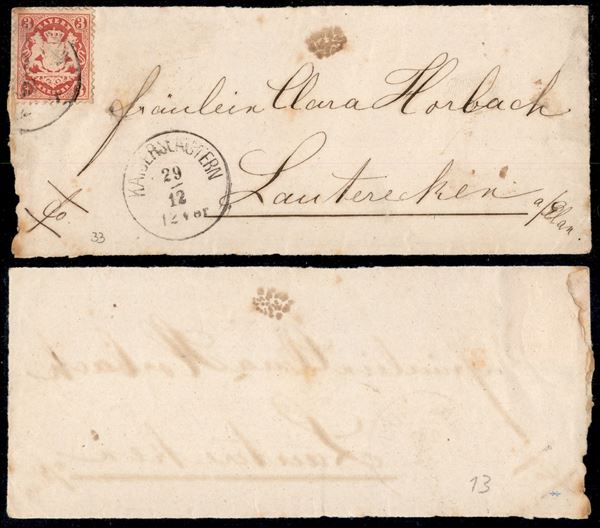 3 BAYERN 3
KREUZER
Fräulein Clara Horbach
KAISERSLAUTERN
29
12
12 Vor
Lauterecken
a/Glan.
33
13